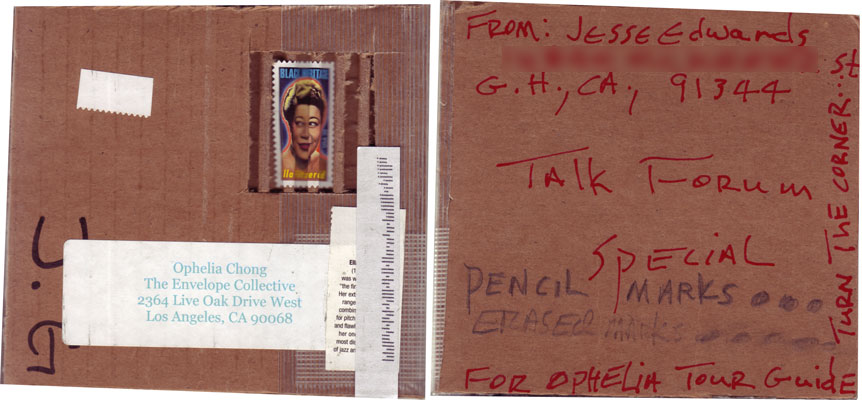 BLACK HERITAGE
Ophelia Chong
The Envelope Collective
2364 Live Oak Drive West
Los Angeles, CA 90068
was
Her
range
for pitch
and
her
most
of jazz
FROM: JESSE Edwards
St
G.H., CA., 91344
TALK FORUM
SPECIAL
PENCIL MARKS...
ERASER MARKS
FOR OPHELIA TOUR GUIDE
TURN THE CORNER...